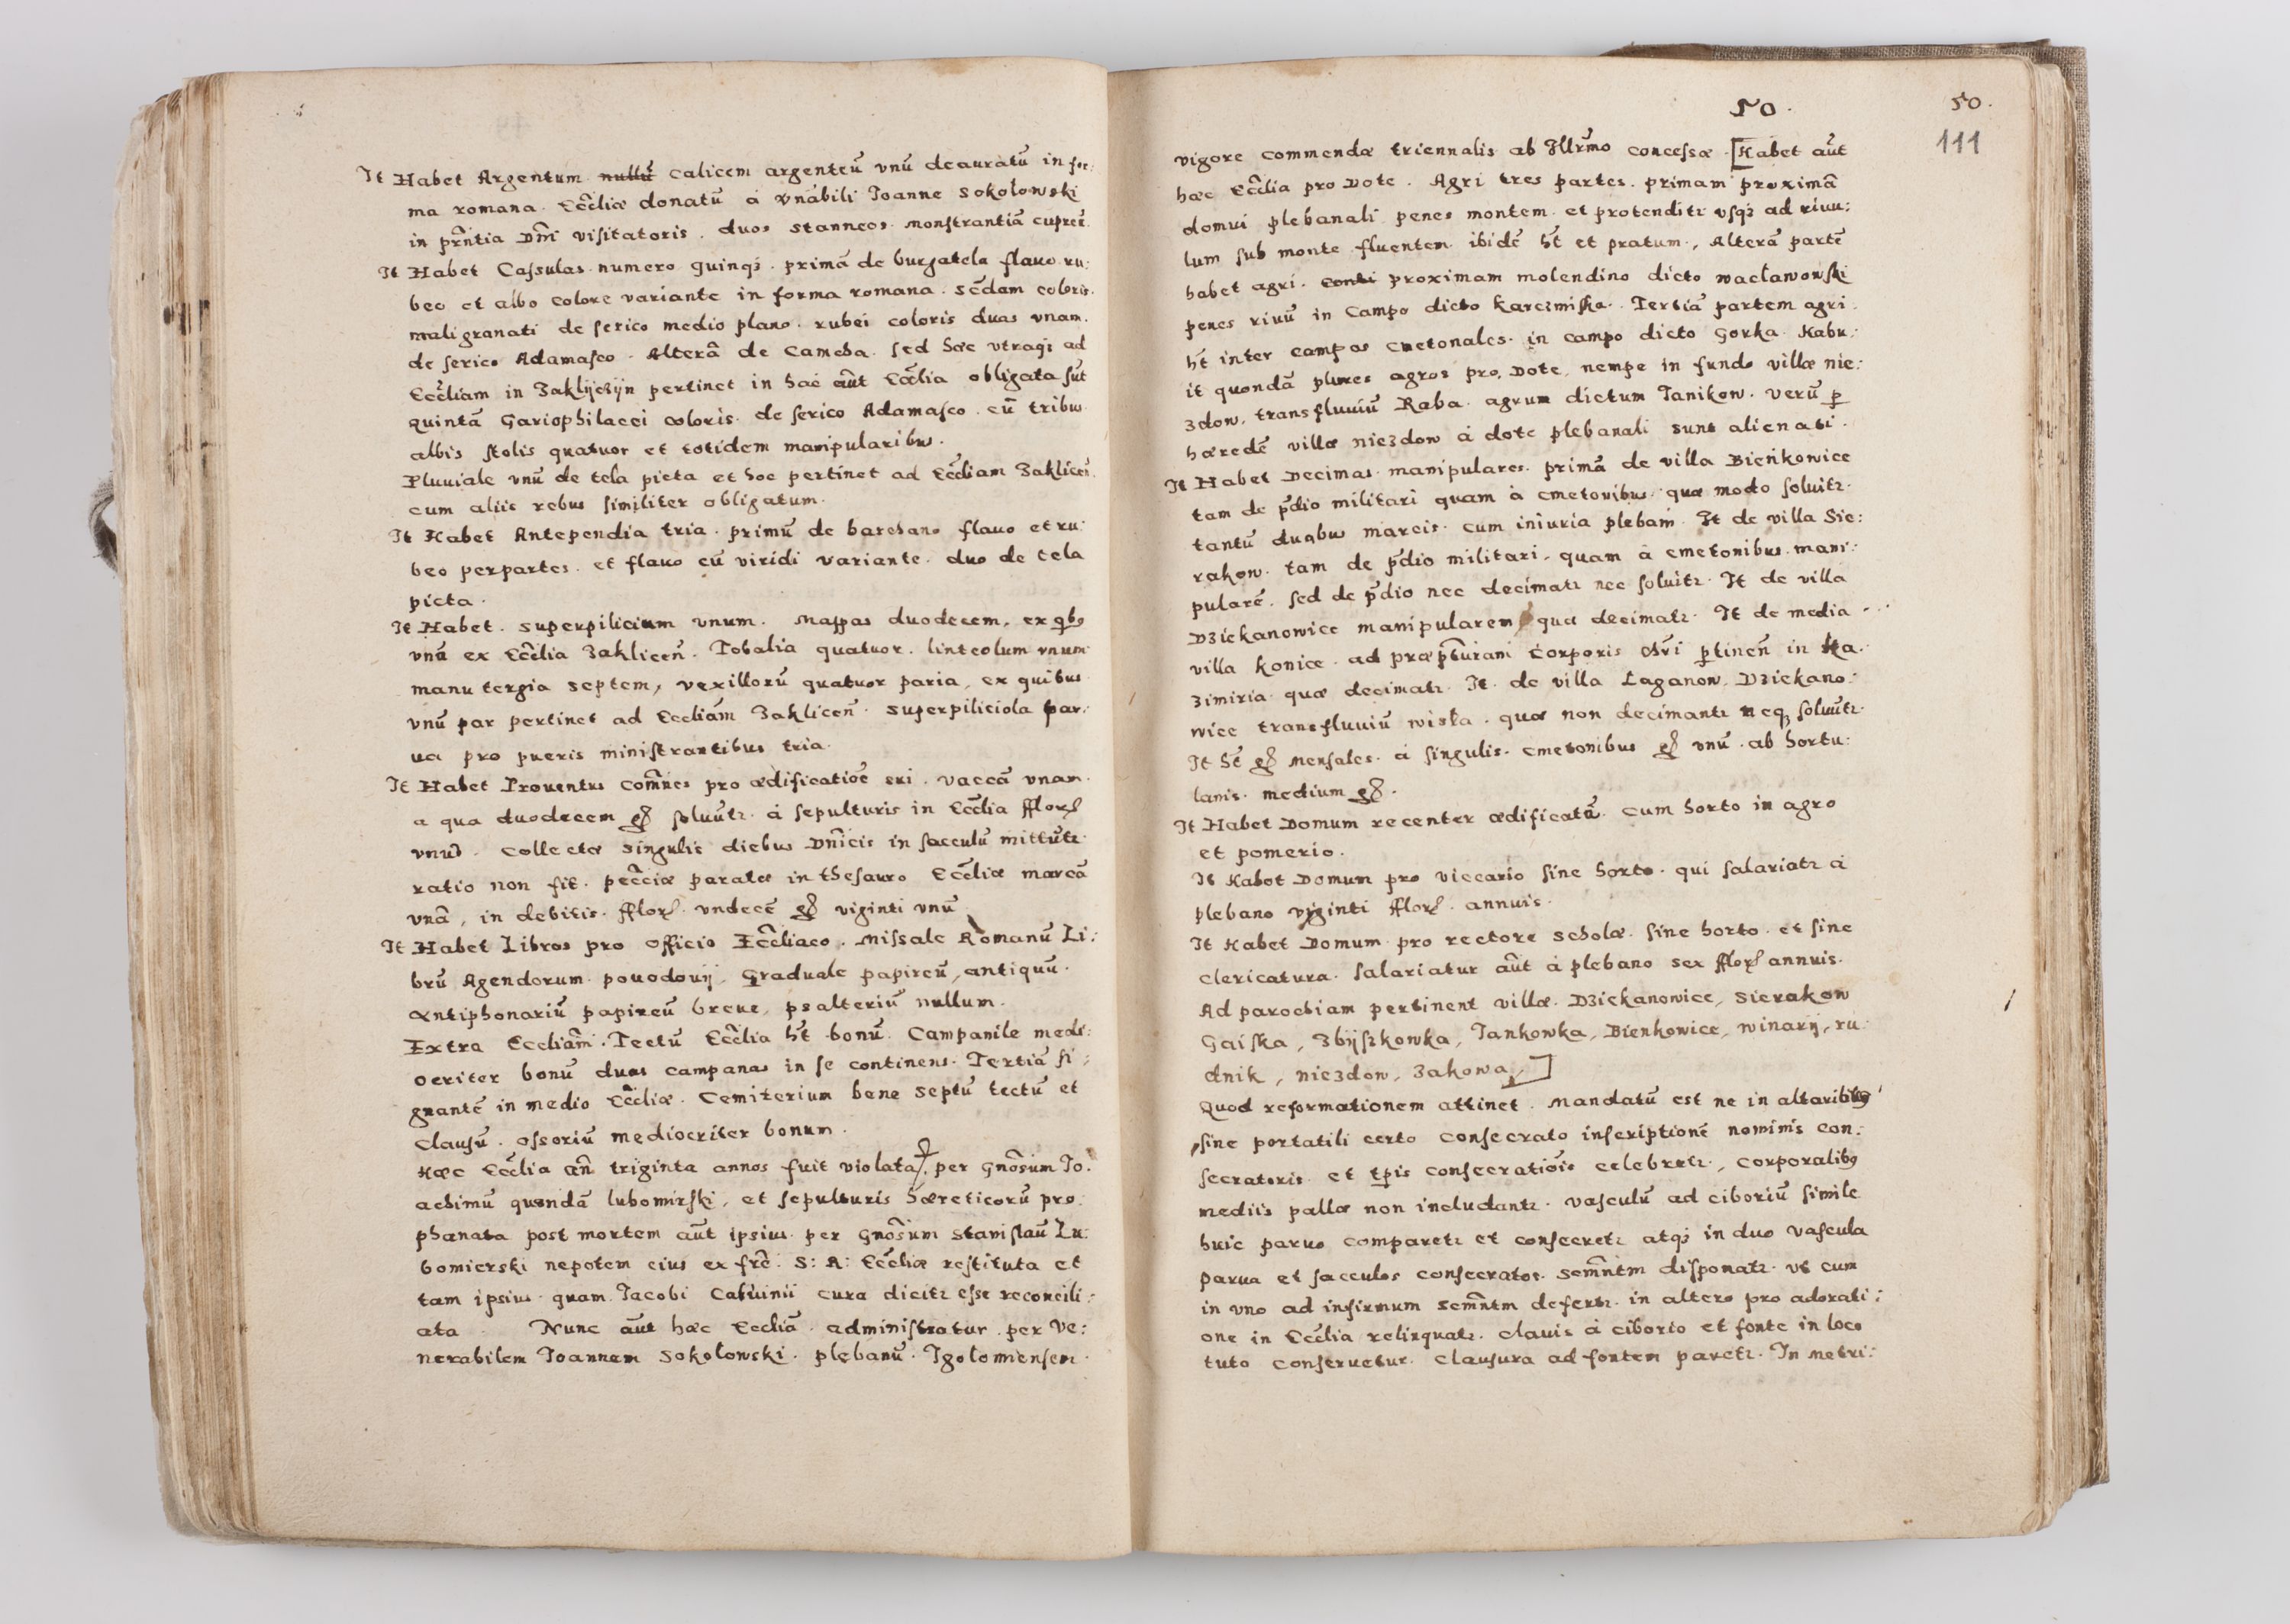 It Habet Argentum nullũ calicem argenteũ vnũ deauratũ in for:
ma romana. Eccłiæ donatũ á vnabili Joanne Sokołowski
in prñtia Dñi visitatoris. duos stanneos. monstrantiã cupreã.
It Habet Casulas numero quinqȝ. primã de burgatela flauo ru:
beo et albo colore variante in forma romana. Sẽdam coloris.
maligranati de serico medio plano. rubei coloris duas vnam.
de serico Adamasco. Alterã de Camcha. sed hæc vtraqȝ ad
Eccłiam in Zaklijczijn pertinet in hac aũt Eccłia obligata sũt
quintã Gariophilacei coloris. de serico Adamasco. cũ tribus
albis stolis quatuor et totidem manipularibus.
Pluuiale vnũ de tela picta et hoc pertinet ad Eccłiam Zaklicen̄.
cum aliis rebus similiter obligatum.
It Habet Antependia tria. primũ de barchano flauo et ru:
beo perpartes. et flauo cũ viridi variante. duo de tela
picta.
It Habet. superpilicium vnum. Mappas duodecem, ex qbȝ
vnã ex Eccłia Zaklicen̄. Tobalia quatuor. linteolum vnum
manu tergia septem, vexillorũ quatuor paria, ex quibus
vnũ par pertinet ad Eccliãm Zaklicen̄. superpiliciola par:
ua pro pueris ministrantibus tria.
It Habet Prouentus com̃nes pro ædificatiõe eri. vaccã vnam.
a qua duodecem gȝ soluũtr. á sepulturis in Eccłia fflorȝ
vnus. Collectæ singulis diebus Dñicis in sacculũ mittũtr.
ratio non fit. pecc̃iæ paratæ in thesauro Eccłiæ marcã
vnã, in debitis. fflorȝ. vndecẽ gȝ viginti vnũ
It Habet Libros pro officio Eccłiaco. Missale Romanũ Li:
brũ Agendorum pouodouij, Graduale papireũ, antiquũ.
Antiphonariũ papireũ breue, psalteriũ nullum.
Extra Eccliãm. Tectũ Eccłia ht̃ bonũ. Campanile medi:
ocriter bonũ duas campanas in se continens. Tertiã si:
gnantẽ in medio Eccłiæ. Cemiterium bene septũ tectũ et
clausũ. ossoriũ mediocriter bonum.
Hæc Eccłia añ triginta annos fuit violata, per Gnõsum Jo:
achimũ quondã lubomirski, et sepulturis hæreticorũ pro:
phanata post mortem aũt ipsius per Gnõsum Stanislaũ Lu:
bomierski nepotem eius ex frẽ. S: R: Eccłiæ restituta et
tam ipsius quam Jacobi Caluinii cura dicitr esse reconcili:
ata Nunc aũt hæc Eccliã administratur per Ve:
nerabilem Joannem Sokołowski. plebanũ. Jgołomiensem.
50.
50.
111
vigore commendæ triennalis ab Jllrm̃o concessæ. [Habet aũt
hæc Eccłia pro Dote. Agri tres partes. primam proximã
domui plebanali penes montem et protenditr vsqȝ ad riuu:
lum sub monte fluentem ibidẽ ht̃ et pratum, Alterã partẽ
habet agri. proximam molendino dicto wacławowski
penes riuũ in Campo dicto karczmiska. Tertiã partem agri.
ht̃ inter campos cmetonales. in campo dicto Gorka. Habu:
it quondã plures agros pro, Dote, nempe in fundo villæ nie:
zdow, trans fluuiũ Raba. agrum dictum Janikow. verũ p̱
hæredẽ villæ niezdow á dote plebanali sunt alienati.
It Habet Decimas manipulares. primã de villa Bieńkowice
tam de p̃dio militari quam á cmetonibus quæ modo soluitr.
tantũ duabus marcis. cum iniuria plebani. It de villa Sie:
rakow. tam de p̃dio militari, quam á cmetonibus. mani:
pularẽ. sed de p̃dio nec decimatr nec soluitr. It de villa
Dziekanowice manipularem quæ decimatr. It de media
villa konice. ad præp̃turam Corporis Chr̃i p̱tinen̄ in Ka:
zimiria quæ decimatr. It. de villa Łaganow, Dziekano:
wice trans fluuiũ wisła. quæ non decimantr neqȝ soluũtr.
It ht̃ gȝ mensales. á singulis. cmetonibus gȝ vnũ. ab hortu:
lanis. medium gȝ.
It Habet Domum recenter ædificatã. cum horto in agro
et pomerio.
It Habet Domum pro viccario sine horto. qui salariatr á
plebano viginti fflorȝ. annuis.
It Habet Domum pro rectore scholæ. sine horto. et sine
clericatura. salariatur aũt á plebano sex fflorȝ annuis.
Ad parochiam pertinent villæ. Dziekanowice, Sierakow
Gaiska, Zbijszkowka, Jankowka, Bienkowice, winarij, ru:
dnik, niezdow, Zakowa,]
Quod reformationem attinet. Mandatũ est ne in altaribus
sine portatili certo consecrato inscriptionẽ nominis con:
secratoris et tp̱is consecratiõis celebretr, corporalibȝ
mediis pallæ non includantr. vasculũ ad ciboriũ simile
huic paruo comparetr et consecretr atqȝ in duo vascula
parua et sacculos consecratos. Semñtm disponatr. vt cum
in vno ad infirmum semñtm defertr. in altero pro adorati:
one in Eccłia relinquatr. clauis á ciborio et fonte in loco
tuto conseruetur. clausura ad fontem paretr. In metri: